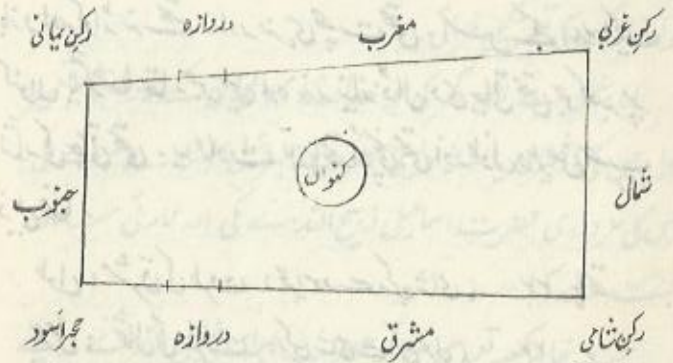 رکن غربی مغرب دروازہ رکن یمانی
شمال کنواں جنوب
رکن شامی مشرق دروازہ حجر اسود